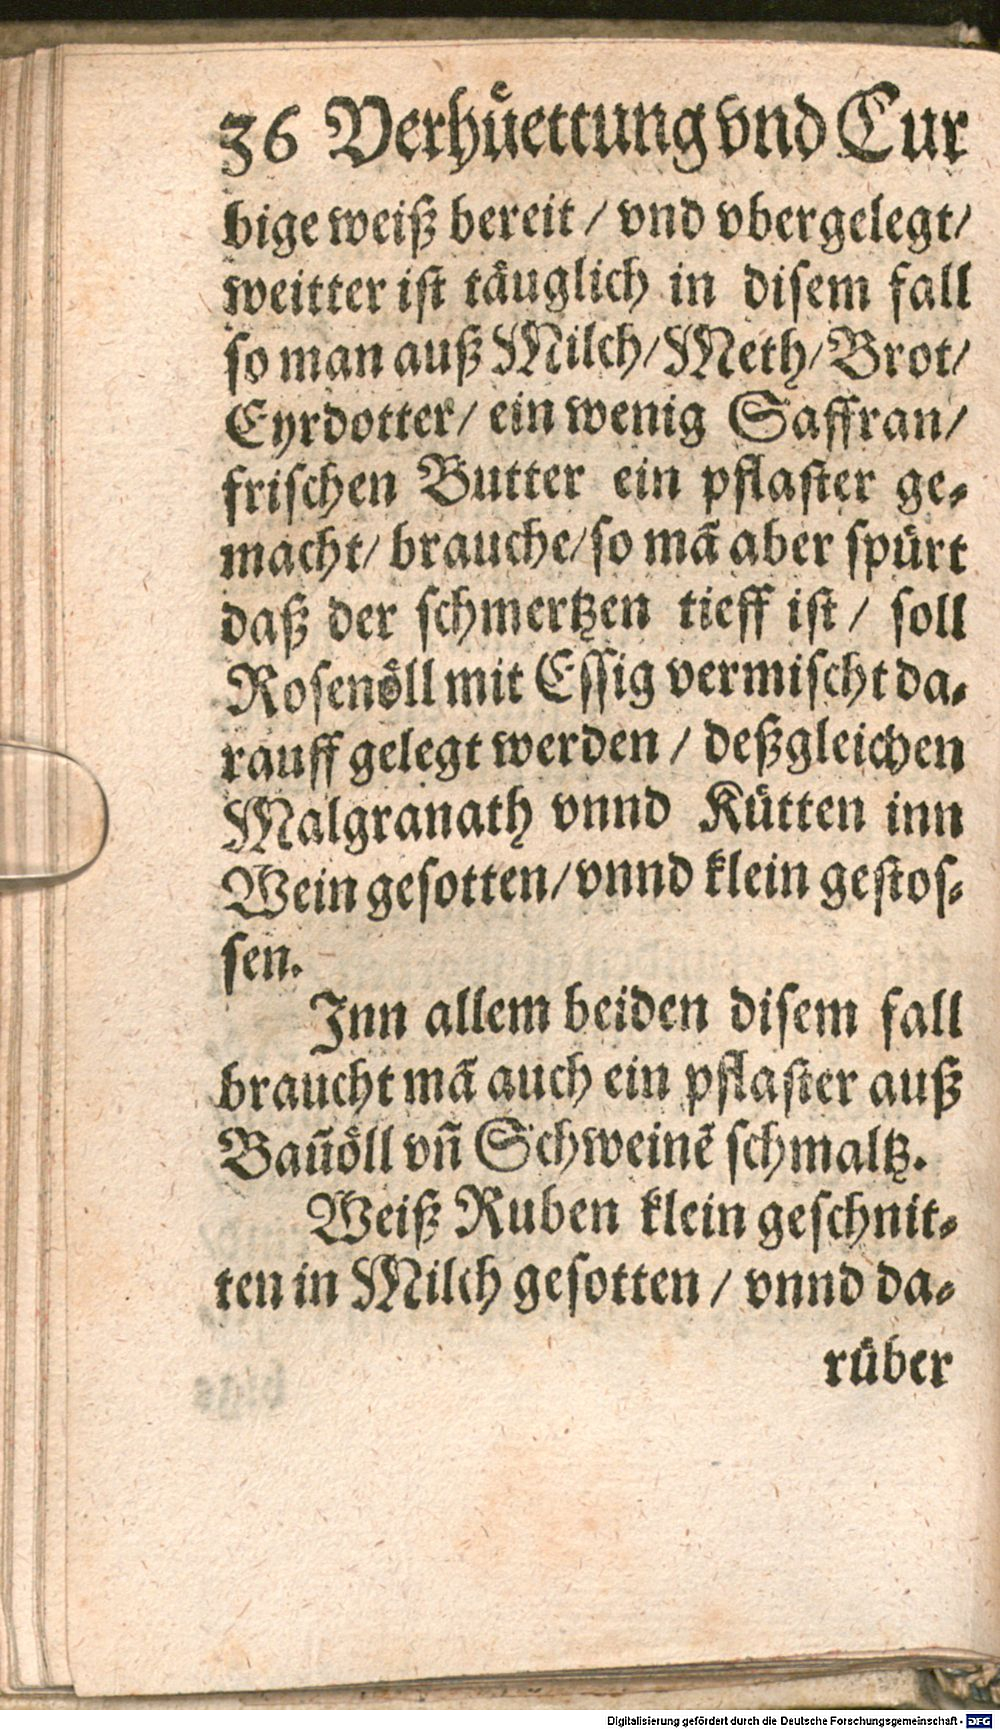 36 Verhuͤettung vnd Cur
bige weiß bereit / vnd vbergelegt/
weitter ist taͤuglich in disem fall
so man auß Milch/ Meth/ Brot/
Eyrdotter/ ein wenig Saffran/
frischen Butter ein pflaster ge⸗
macht/ brauche/ so mã aber spürt
daß der schmertzen tieff ist / soll
Rosenoͤll mit Essig vermischt da⸗
rauff gelegt werden / deßgleichen
Malgranath vnnd Kütten inn
Wein gesotten/ vnnd klein gestos⸗
sen.
Inn allem beiden disem fall
braucht mã auch ein pflaster auß
Baũöll vñ Schweinẽ schmaltz.
Weiß Ruben klein geschnit⸗
ten in Milch gesotten / vnnd da⸗
rüber
Digitalisierung gefördert durch die Deutsche Forschungsgemeinschaft - DFG